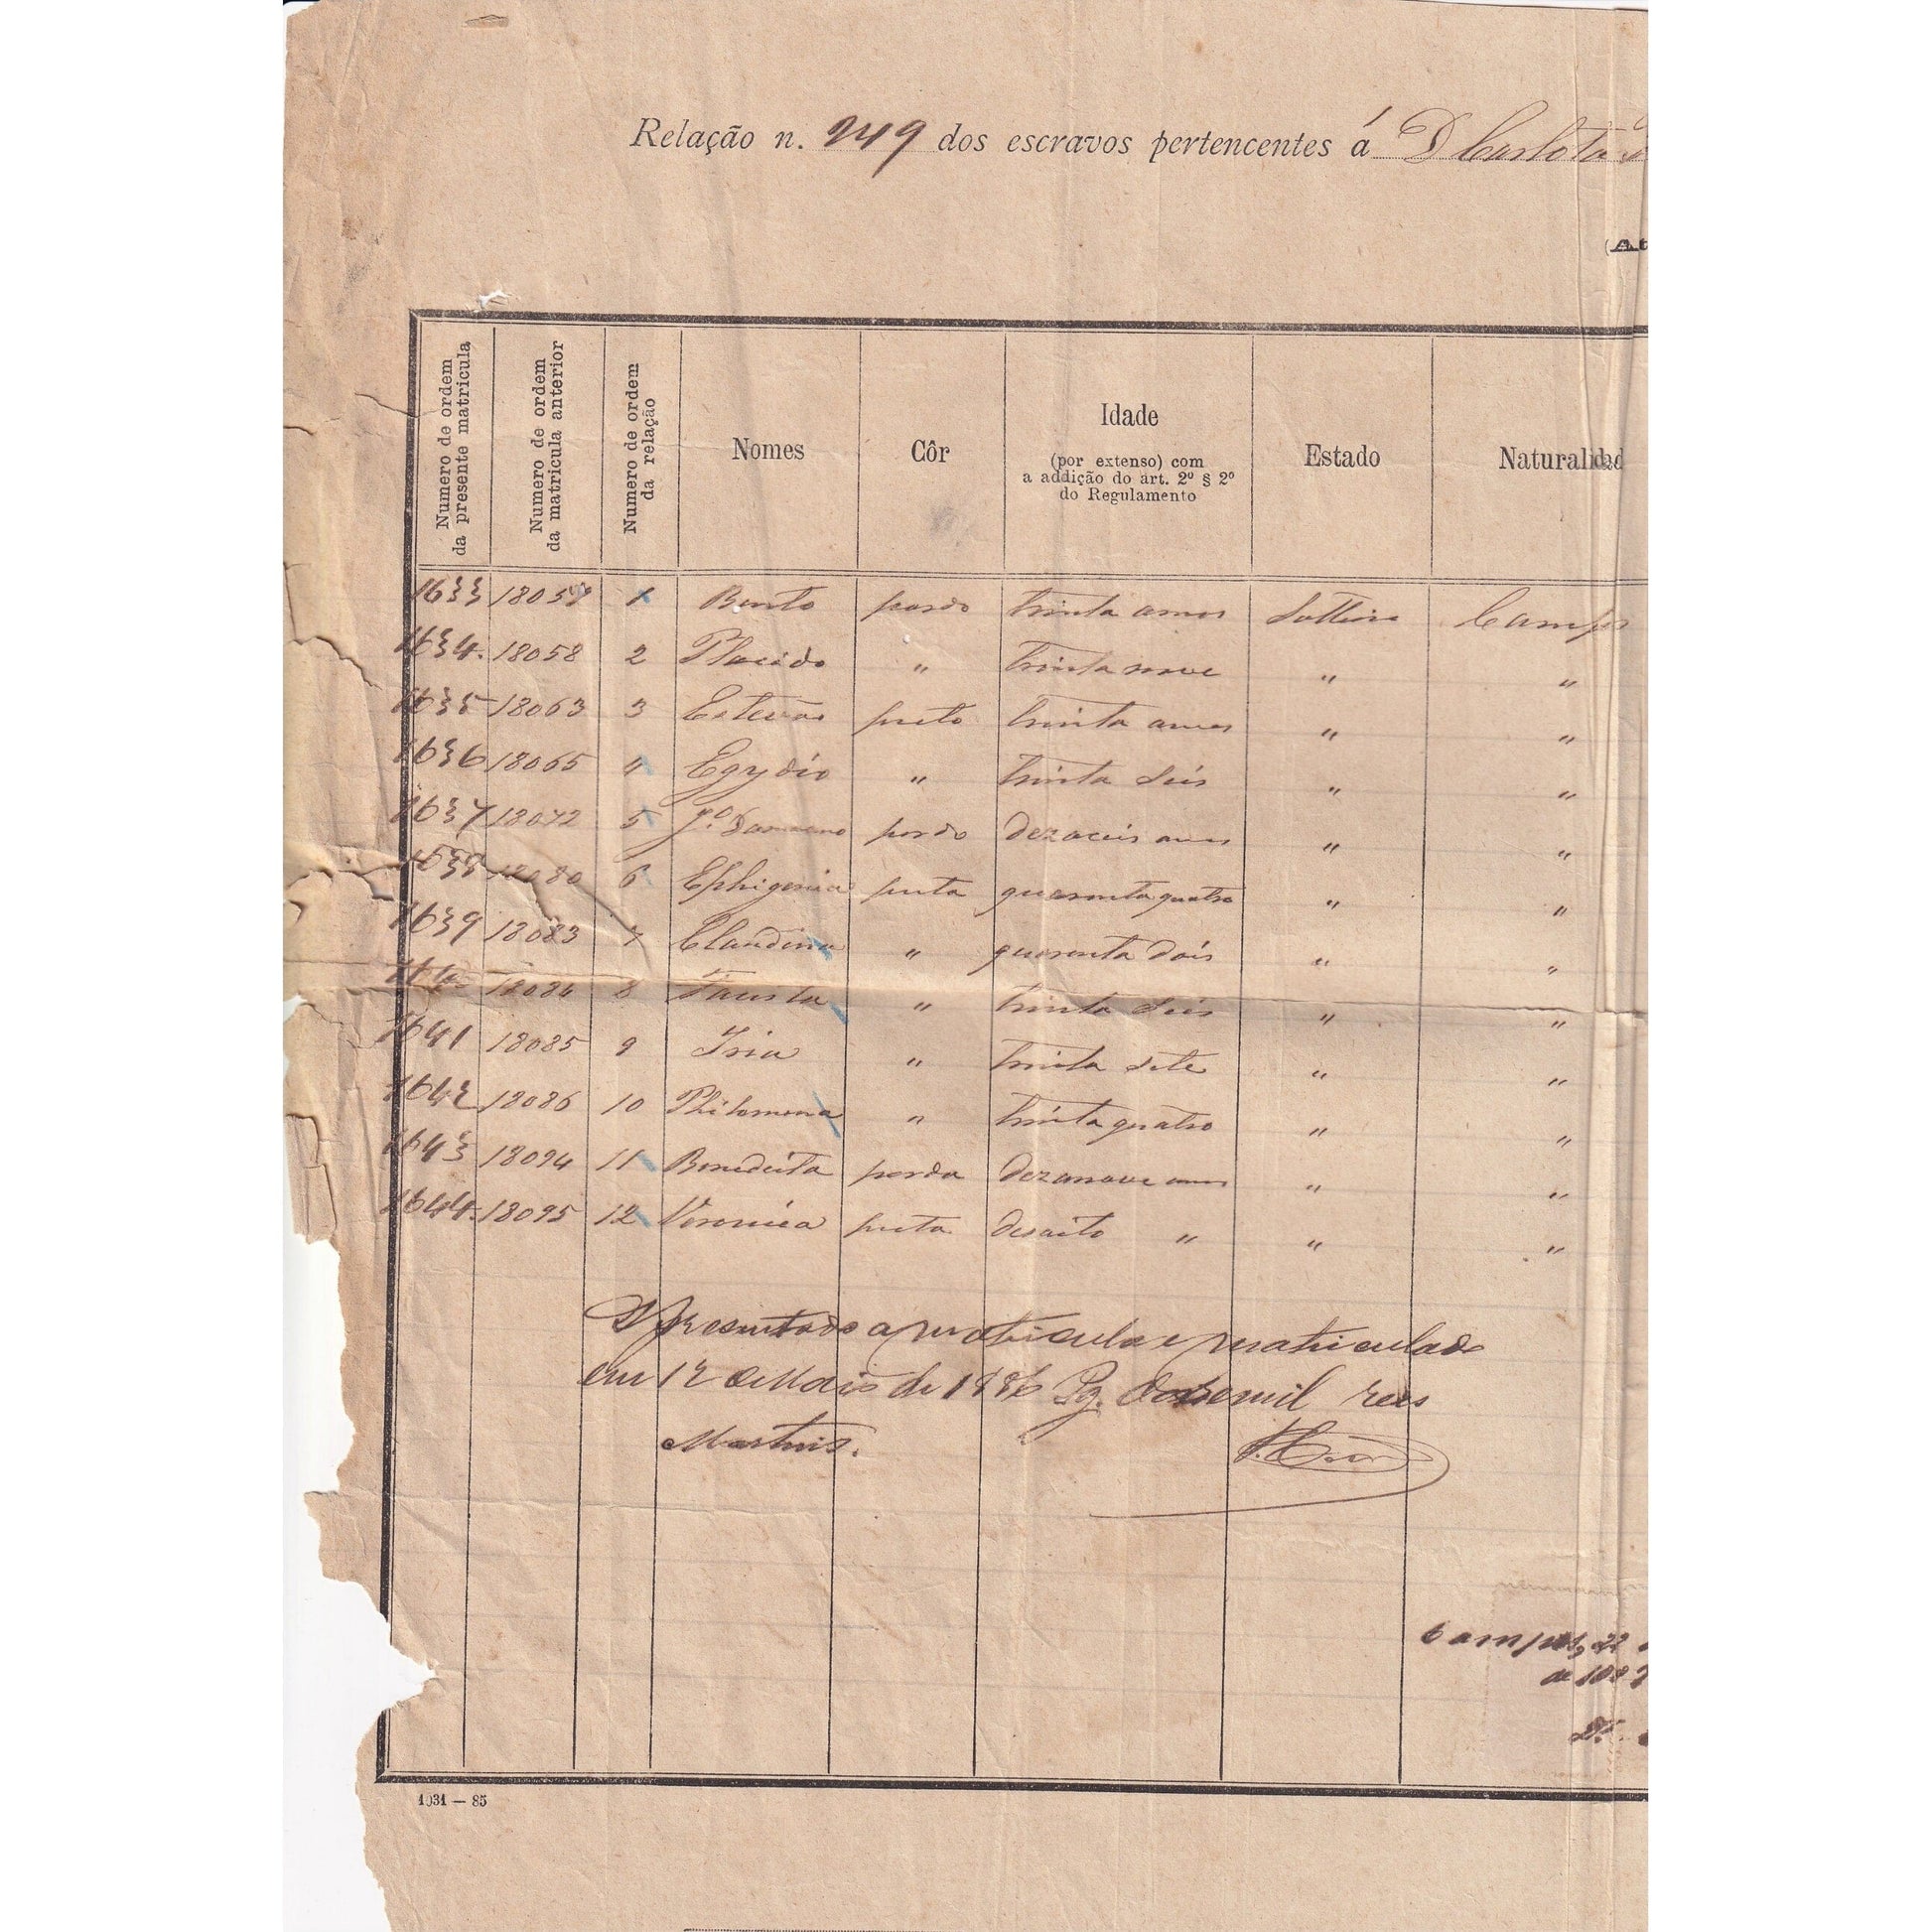 Relação n. 249 dos escravos pertencentes á D Carlota
(At
Numero de ordem da presente matricula
Numero de ordem da matricula anterior
Numero de ordem da relação
Nomes
Côr
Idade
(por extenso) com
a addição do art. 2º § 2º
do Regulamento
Estado
Naturalidad
1633 18057 1 Bento pardo trinta annos Solteiro Campos
1634. 18058 2 Placido " trinta nove " "
1635 18063 3 Estevão preto trinta annos " "
1636 18065 4 Egydio " trinta seis " "
1637 18072 5 Jº. Damaceno pardo dezaceis annos " "
1638 18080 6 Ephigenia preta quarenta quatro " "
1639 18083 7 Claudina " quarenta dois " "
18084 8 Fausta " trinta seis " "
1641 18085 9 Iria " trinta sete " "
1642 18086 10 Philomena " trinta quatro " "
1643 18094 11 Benedicta parda dezanove annos " "
1644. 18095 12 Veronica preta desoito " " "
Apresentado a matricula e matriculado
em 12 de Maio de 1886 Pg. doze mil reis
Martins.
Campos, 22
de 188
1031 — 85